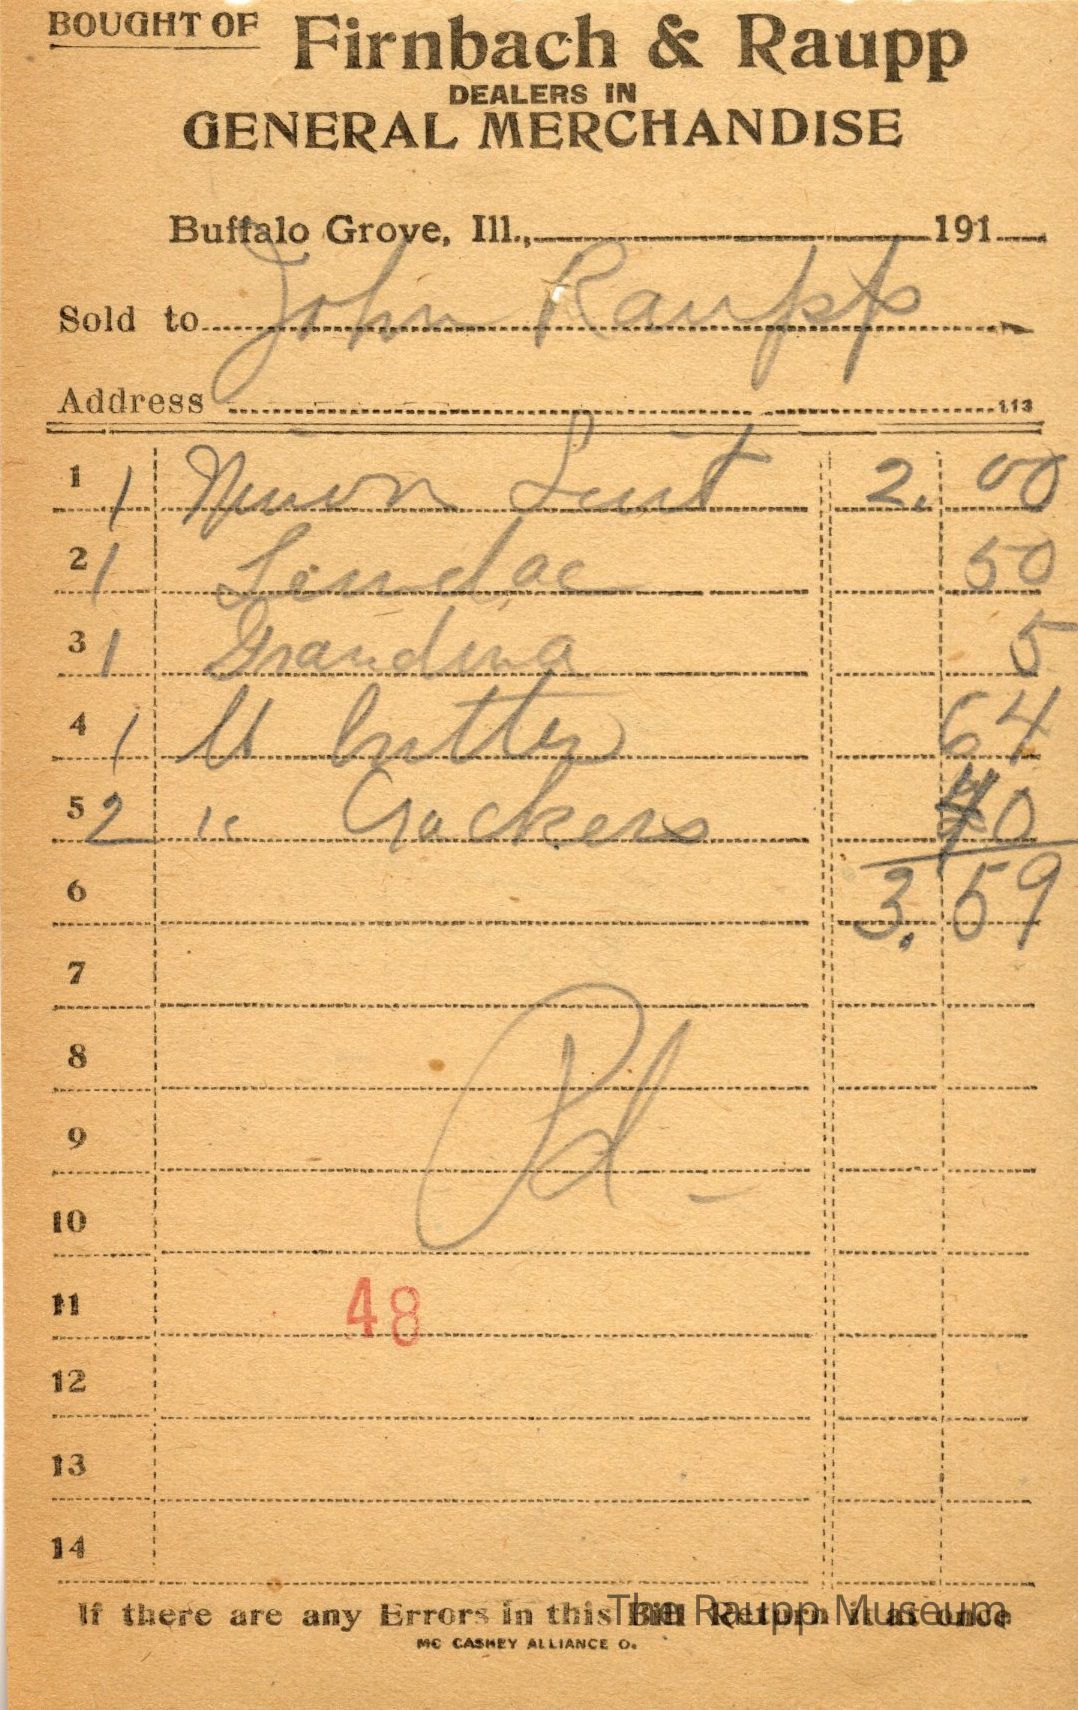 BOUGHT OF Firnbach & Raupp
DEALERS IN
GENERAL MERCHANDISE
Buffalo Grove, Ill., 191
Sold to John Raupp
Address 113
1 1 Union Suit 2. 00
2 1 50
3 1 Grandma 5
4 1 lb butter 64
5 2 " Crackers 40
6 3. 59
7
8
9
Pd -
10
11 48
12
13
14
If there are any Errors in this Bill Return it at once
The Raupp Museum
MC CASKEY ALLIANCE O.